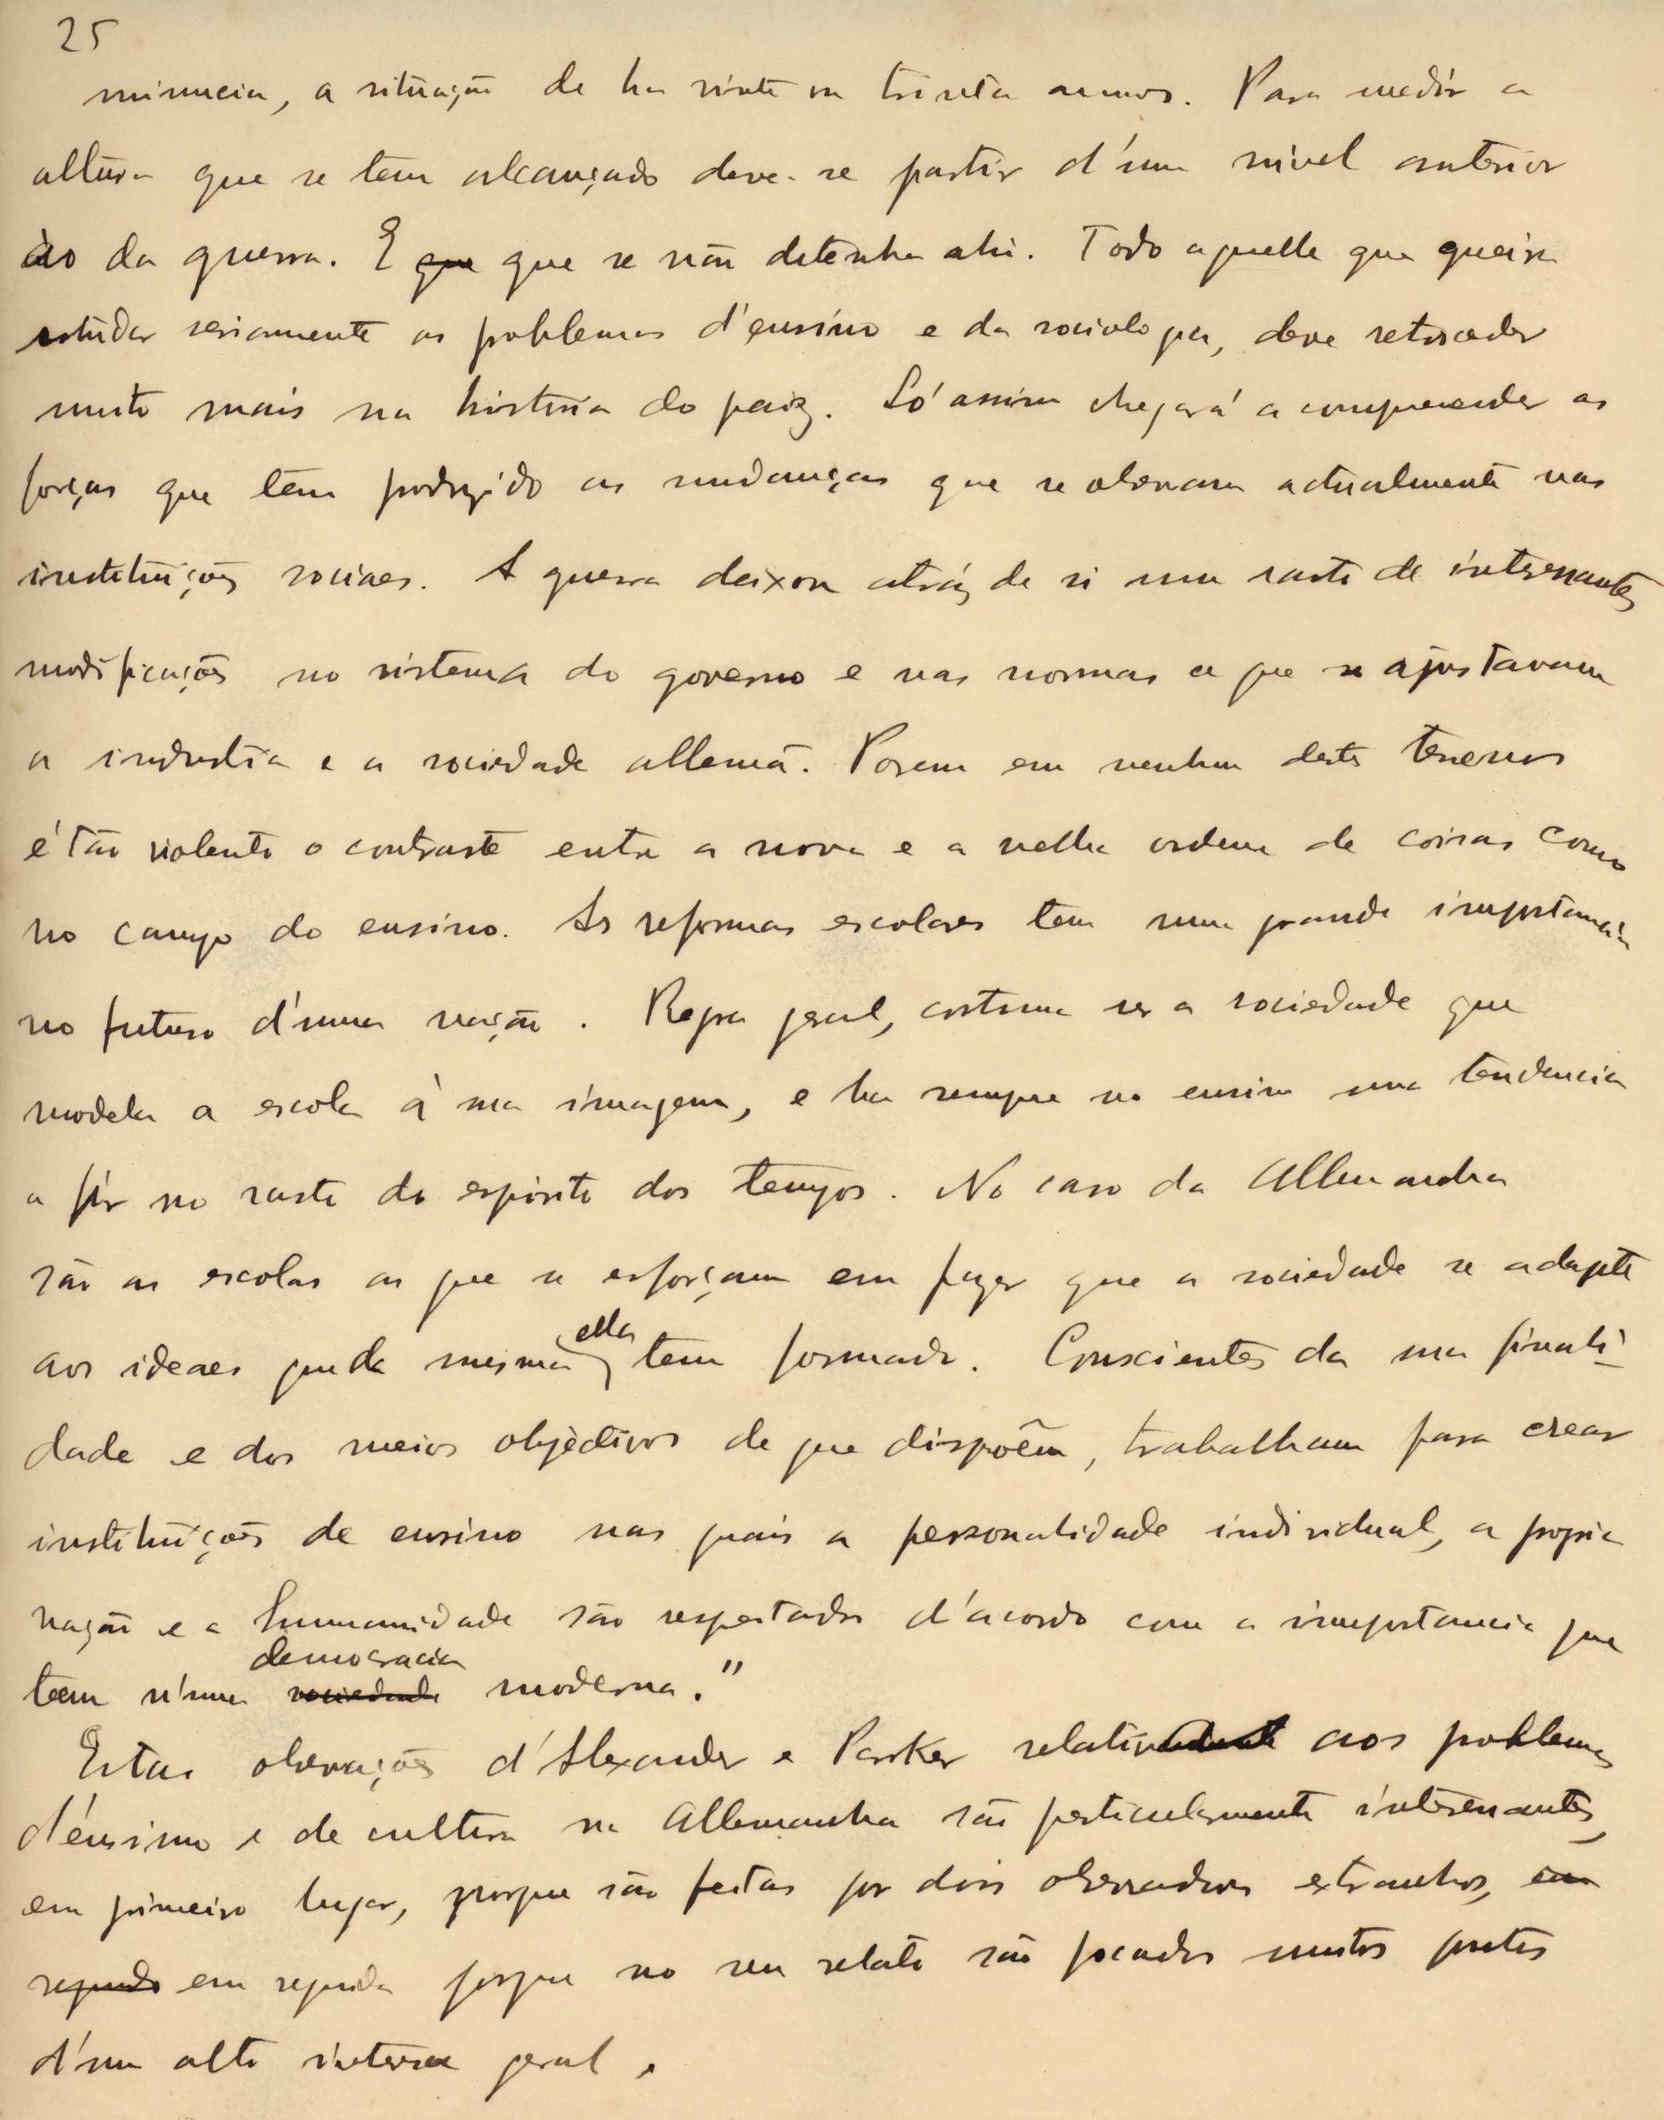 25
minucia, a situação de ha vinte ou trinta annos. Para medir a
altura que se tem alcançado deve-se partir d'um nivel anterior
ao da guerra. E que que se não detenha ahi. Todo aquelle que queira
estudar seriamente os problemas d'ensino e da sociologia, deve retroceder
muito mais na historia do paiz. Só assim chegará a comprehender as
forças que têm produzido as mudanças que se observam actualmente nas
instituições sociaes. A guerra deixou atráz de si um rasto de interessantes
modificações no sistema do governo e nas normas a que se ajustavam
a industria e a sociedade allemã. Porem em nenhum destes terrenos
é tão violento o contraste entre a nova e a velha ordem de coisas como
no campo do ensino. As reformas escolares tem uma grande importancia
no futuro d'uma nação. Regra geral, costuma ser a sociedade que
modela a escola á sua imagem, e ha sempre no ensino uma tendencia
a ir no rasto do espirito dos tempos. No caso da Allemanha
são as escolas as que se esforçam em fazer que a sociedade se adapte
aos ideaes que mesma ella tem formado. Conscientes da sua finali-
dade e dos meios objectivos de que dispõem, trabalham para crear
instituições de ensino nas quais a personalidade individual, a propria
nação e a humanidade são respeitados d'acordo com a importancia que
democracia
tem n'uma sociedade moderna."
Estas observações d'Alexander e Parker aos problemas
d'ensino e de cultura na Allemanha são particularmente interessantes,
em primeiro lugar, porque são feitas por dois observadores extranhos, em
segundo em seguida porque no seu relato são focados muitos pontos
d'um alto interesse geral.